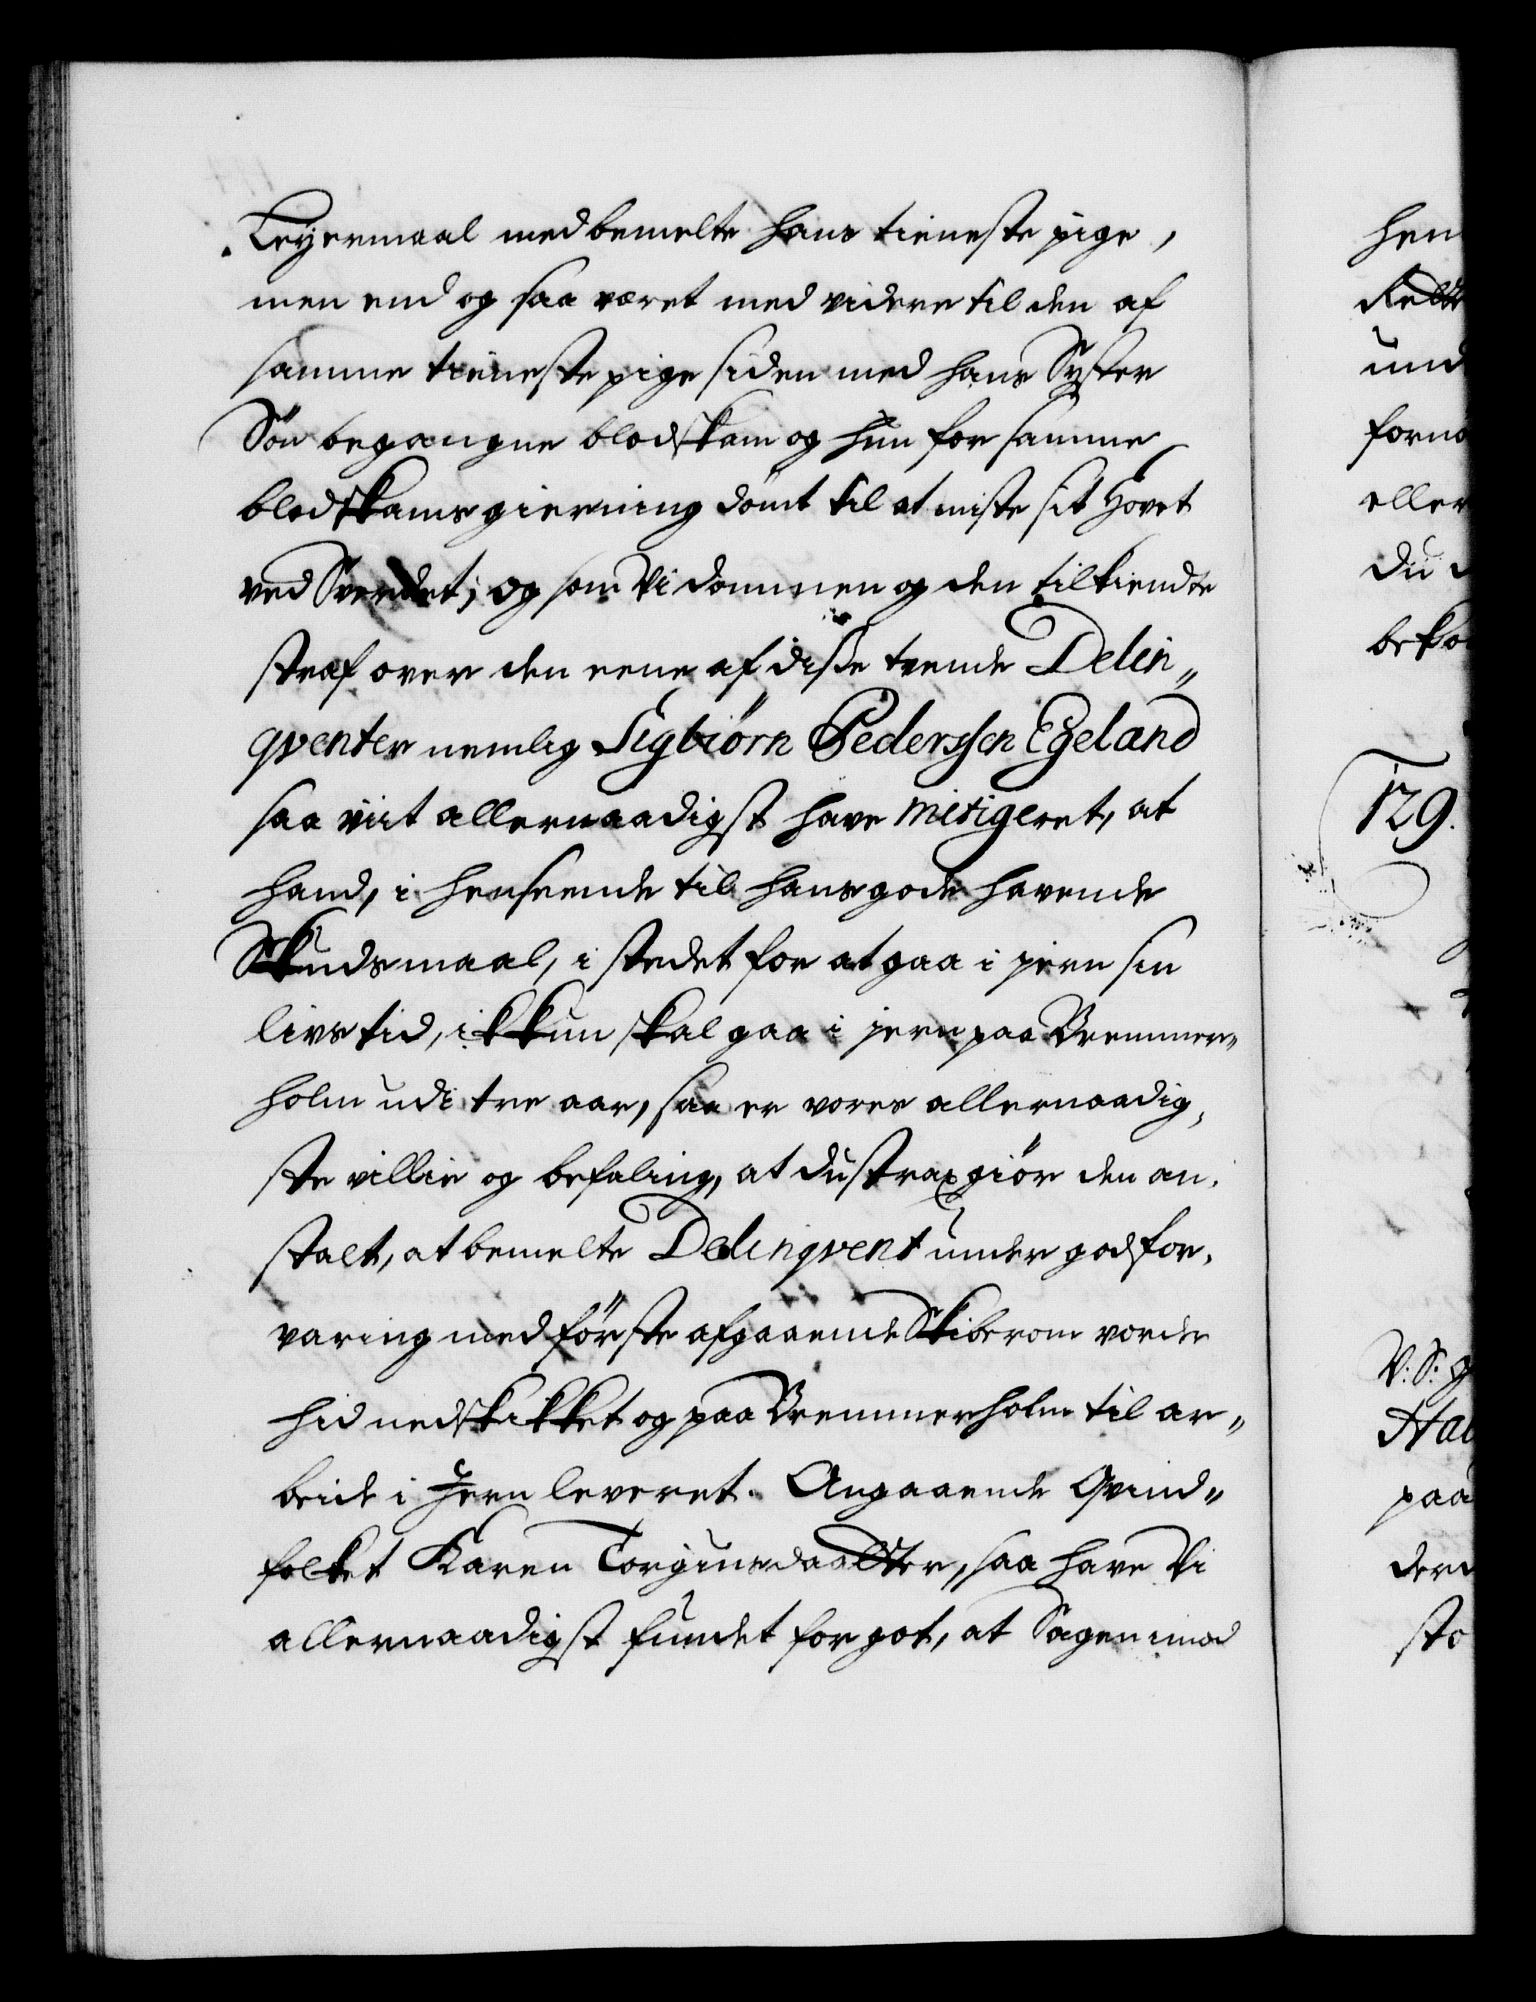 Leyermaal med bemelte hans tieneste pige,
men end og saa været med videre til den af
samme tieneste pige siden med hans Syster
Søn begangne blodskam og hun for samme
blodskams gierning dømt til at miste sit Hovet
ved Sverdet; og som Vi dommen og den tilkiendte
straf over den eene af disse tvende Delin„
qventer nemlig Sigbiørn Pederssen Egeland
saa vit allernaadigst have mitigeret, at
hand, i henseende til hans gode havende
Skudsmaal, i stedet for at gaa i jern sin
livstid, ikkun skal gaa i jern paa Bremmer„
holm udi tre aar, saa er vores allernaadig,
ste villie og befaling, at du strax giør den an,
stalt, at bemelte Delinqvent under god for,
varing med første afgaaende Skiberom vorder
hid nedskikket og paa Bremmerholm til ar„
beide i Jern leveret. Angaaende Qvind„
folket Karen Torgiusdaatter, saa have Vi
allernaadigst fundet for got, at Sagen imod
129.